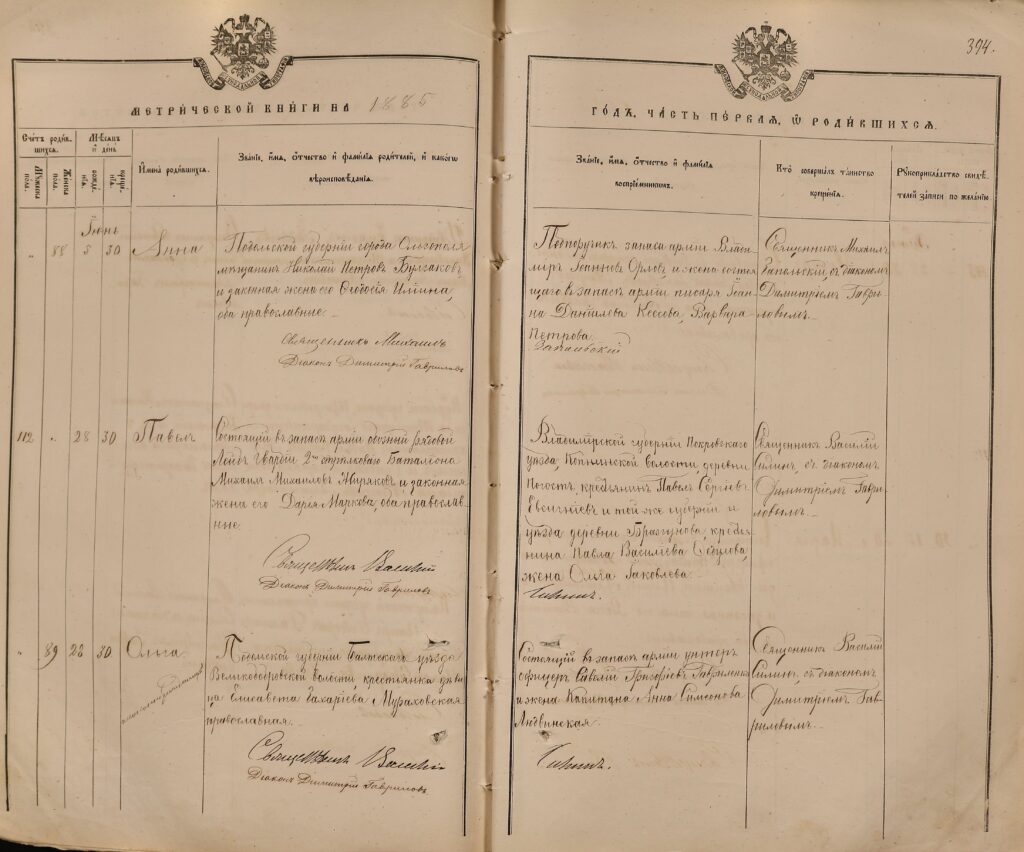 394.
МЕТРИ́ЧЕСКОЙ КНИ́ГИ НА 1885
ГО́ДЪ, ЧА́СТЬ ПЕ́РВАЯ, Ѡ РОДИ́ВШИХСЯ.
Счетъ роди́вшихся.
Мужеска пола.
Женска пола.
Мѣсяцъ и день
рожденія.
крещенія.
Имена родившихся.
Званіе, имя, отчество и фамилія родителей, и какого
вѣроисповѣданія.
Званіе, имя, отчество и фамилія
воспріемниковъ.
Кто совершалъ таинство
крещенія.
Рукоприкладство свидѣ-
телей записи по желанію
Іюнь
" 88 5 30 Анна
Подольской губерніи города Ольгополя
мѣщанинъ Николай Петровъ Булгаковъ
и законная жена его Ѳеодосія Ильина,
оба православные.
Священникъ Михаилъ
Діаконъ Димитрій Гавриловъ
Подпоручикъ запаса арміи Влади-
міръ Іоанновъ Орловъ и жена состоя-
щаго въ запасѣ арміи писаря Іоан-
на Данилова Варвара
Петрова.
Запольскій
Священникъ Михаилъ
Запольскій съ діакономъ
Димитріемъ Гаври-
ловымъ.
112 " 28 30 Павелъ
Состоящій въ запасѣ арміи обозный рядовой
Лейбъ Гвардіи 2го стрѣлковаго Баталіона
Михаилъ Михаиловъ Жиряковъ и законная
жена его Дарія Маркова, оба православ-
ные.
Священникъ Василій
Діаконъ Димитрій Гавриловъ
Владимірской губерніи Покровскаго
уѣзда, волости, деревни
Погостъ, крестьянинъ Павелъ Сергіевъ
Евсигніевъ и той же губерніи и
уѣзда деревни крестья-
нина Павла Василіева
жена Ольга Іаковлева.
Силинъ.
Священникъ Василій
Силинъ, съ діакономъ
Димитріемъ Гаври-
ловымъ.
" 89 28 30 Ольга
Подольской губерніи Балтскаго уѣзда
волости крестьянка дѣви-
ца Елисавета Захаріева Мураховская
православная.
Священникъ Василій
Діаконъ Димитрій Гавриловъ
Состоящій въ запасѣ арміи унтеръ
офицеръ Савелій Григоріевъ Гавриленко
и жена Капитана Анна Симеонова
Силинъ.
Священникъ Василій
Силинъ, съ діакономъ
Димитріемъ Гав-
риловымъ.